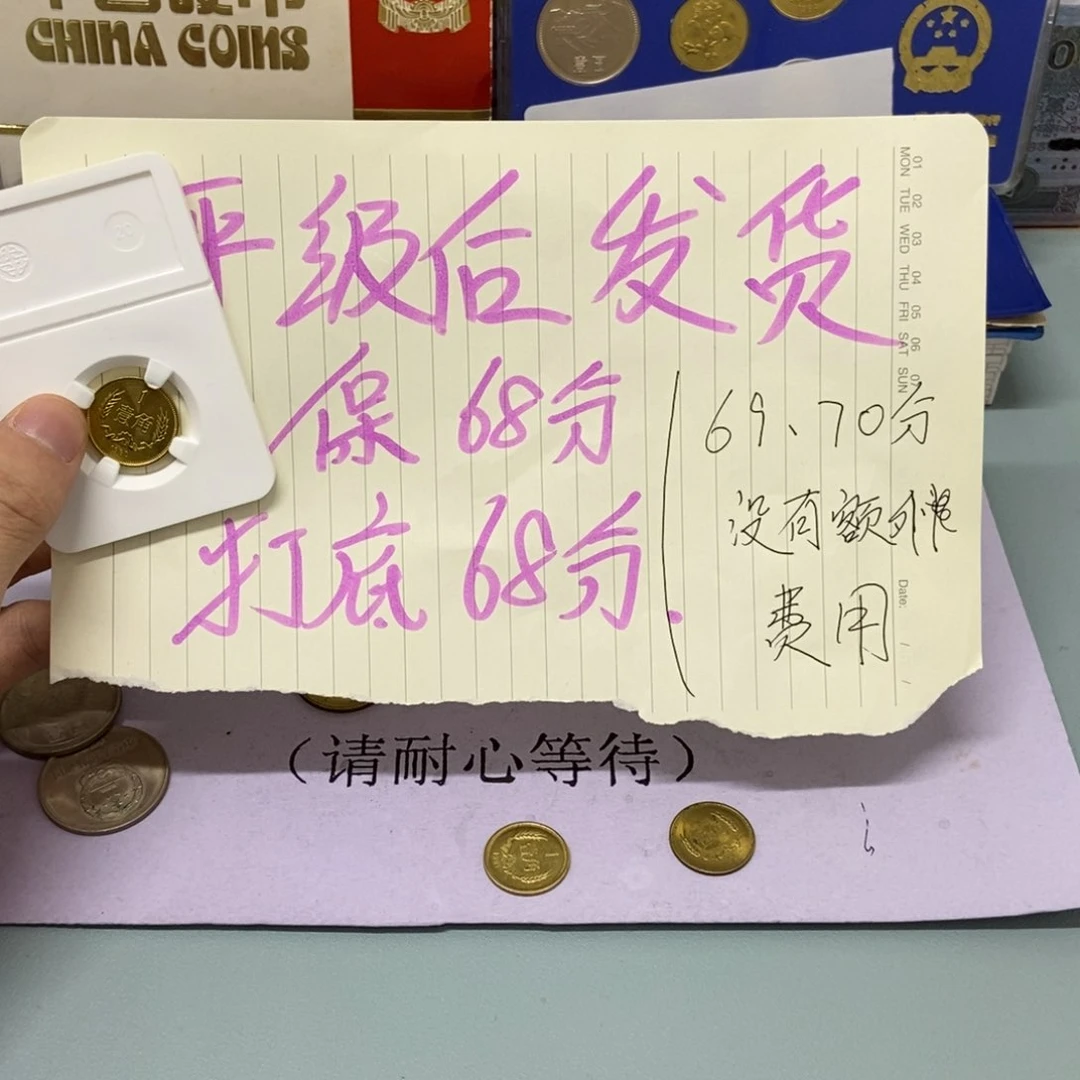 CHINA COINS
评级后发货
保 68分
打底 68分.
69、70分
没有额外
费用
01 02 03 04 05 06 07
MON TUE WED THU FRI SAT SUN
Date: / /
(请耐心等待)
壹角